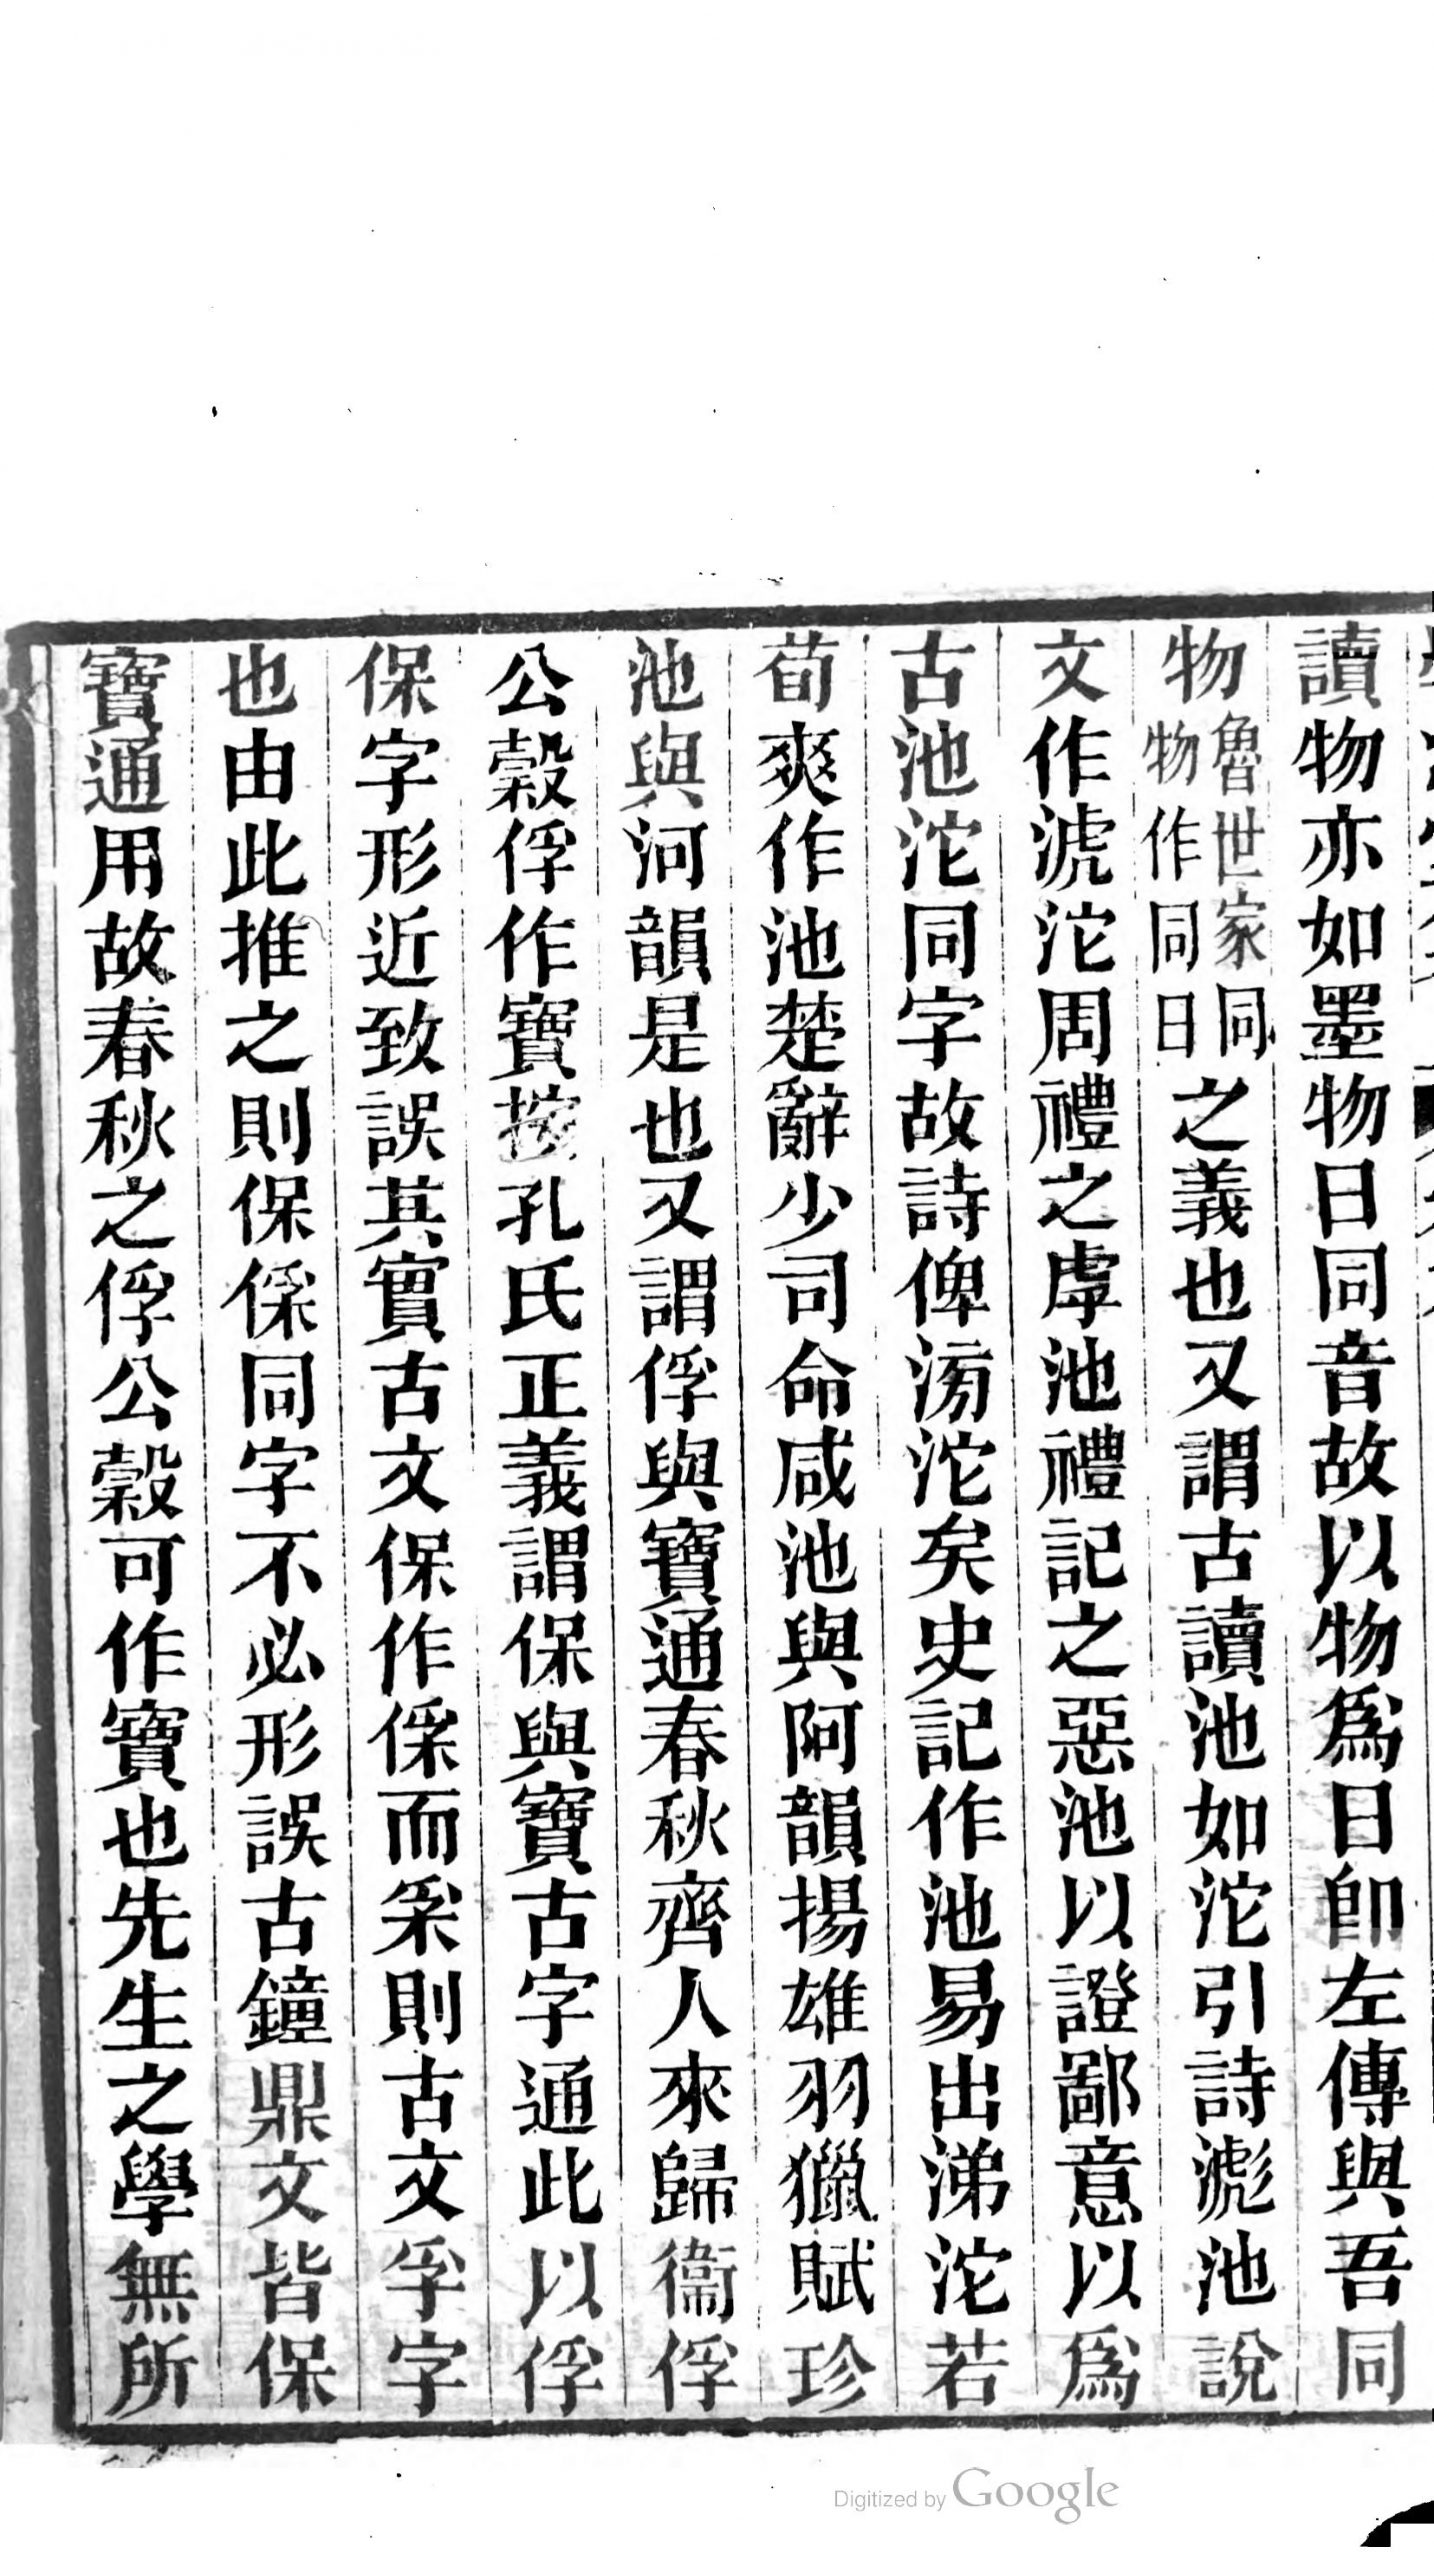 讀物亦如墨物日同音故以物爲日卽左傳與吾同
物魯世家同物作同日之義也又謂古讀池如沱引詩滮池說
文作淲沱周禮之虖池禮記之惡池以證鄙意以爲
古池沱同字故詩俾滂沱矣史記作池易出涕沱若
荀爽作池楚辭少司命咸池與阿韻揚雄羽獵賦珍
池與河韻是也又謂俘與寶通春秋齊人來歸衞俘
公穀俘作寶按孔氏正義謂保與寶古字通此以俘
保字形近致誤其實古文保作保而采則古文孚字
也由此推之則保保同字不必形誤古鐘鼎文皆保
寶通用故春秋之俘公穀可作寶也先生之學無所
Digitized by Google